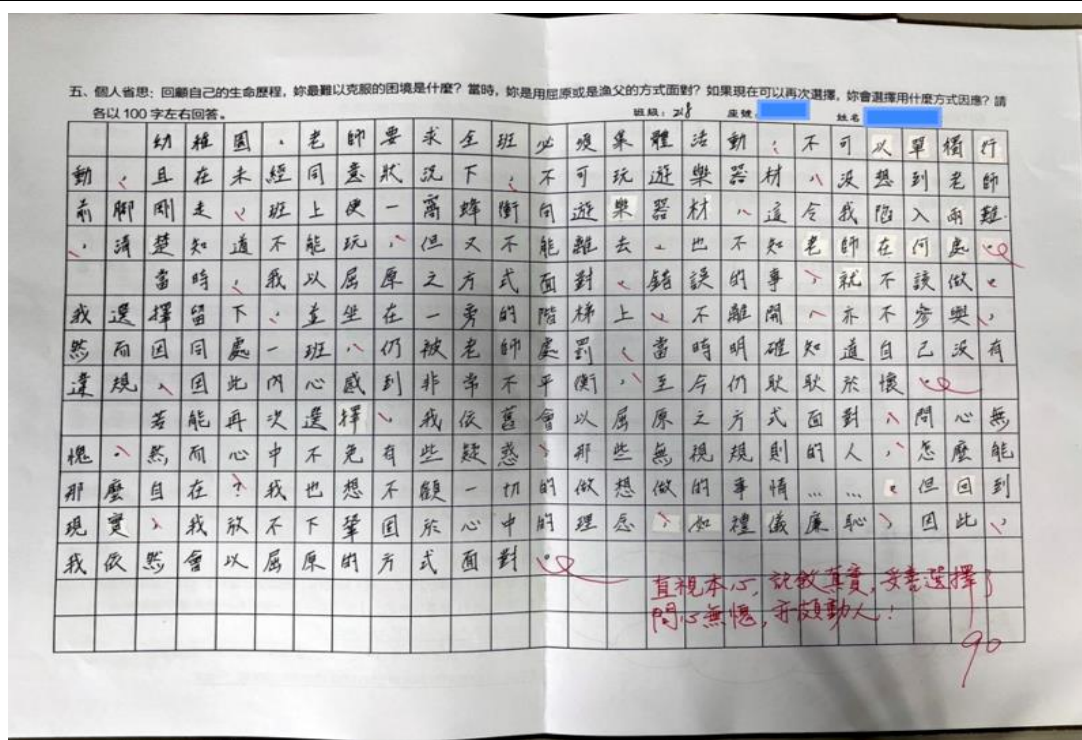 五、個人省思：回顧自己的生命歷程，妳最難以克服的困境是什麼？當時，妳是用屈原或是漁父的方式面對？如果現在可以再次選擇，妳會選擇用什麼方式因應？請
各以 100 字左右回答。
班級：218 座號： 姓名
幼稚園，老師要求全班必須集體活動，不可以單獨行
動，且在未經同意狀況下，不可玩遊樂器材，沒想到老師
前腳剛走，班上便一窩蜂衝向遊樂器材，這令我陷入兩難
，清楚知道不能玩，但又不能離去，也不知老師在何處。
當時，我以屈原之方式面對，錯誤的事，就不該做。
我選擇留下，並坐在一旁的階梯上，不離開、亦不參與，
然而因同處一班，仍被老師處罰，當時明確知道自己沒有
違規，因此內心感到非常不平衡，至今仍耿耿於懷。
若能再次選擇，我依舊會以屈原之方式面對，問心無
愧，然而心中不免有些疑惑，那些無視規則的人，怎麼能
那麼自在？我也想不顧一切的做想做的事情……。但回到
現實，我放不下鞏固於心中的理念，如禮儀廉恥，因此，
我依然會以屈原的方式面對。
直視本心，記敘真實，妥善選擇，
問心無愧，亦頗動人！
90